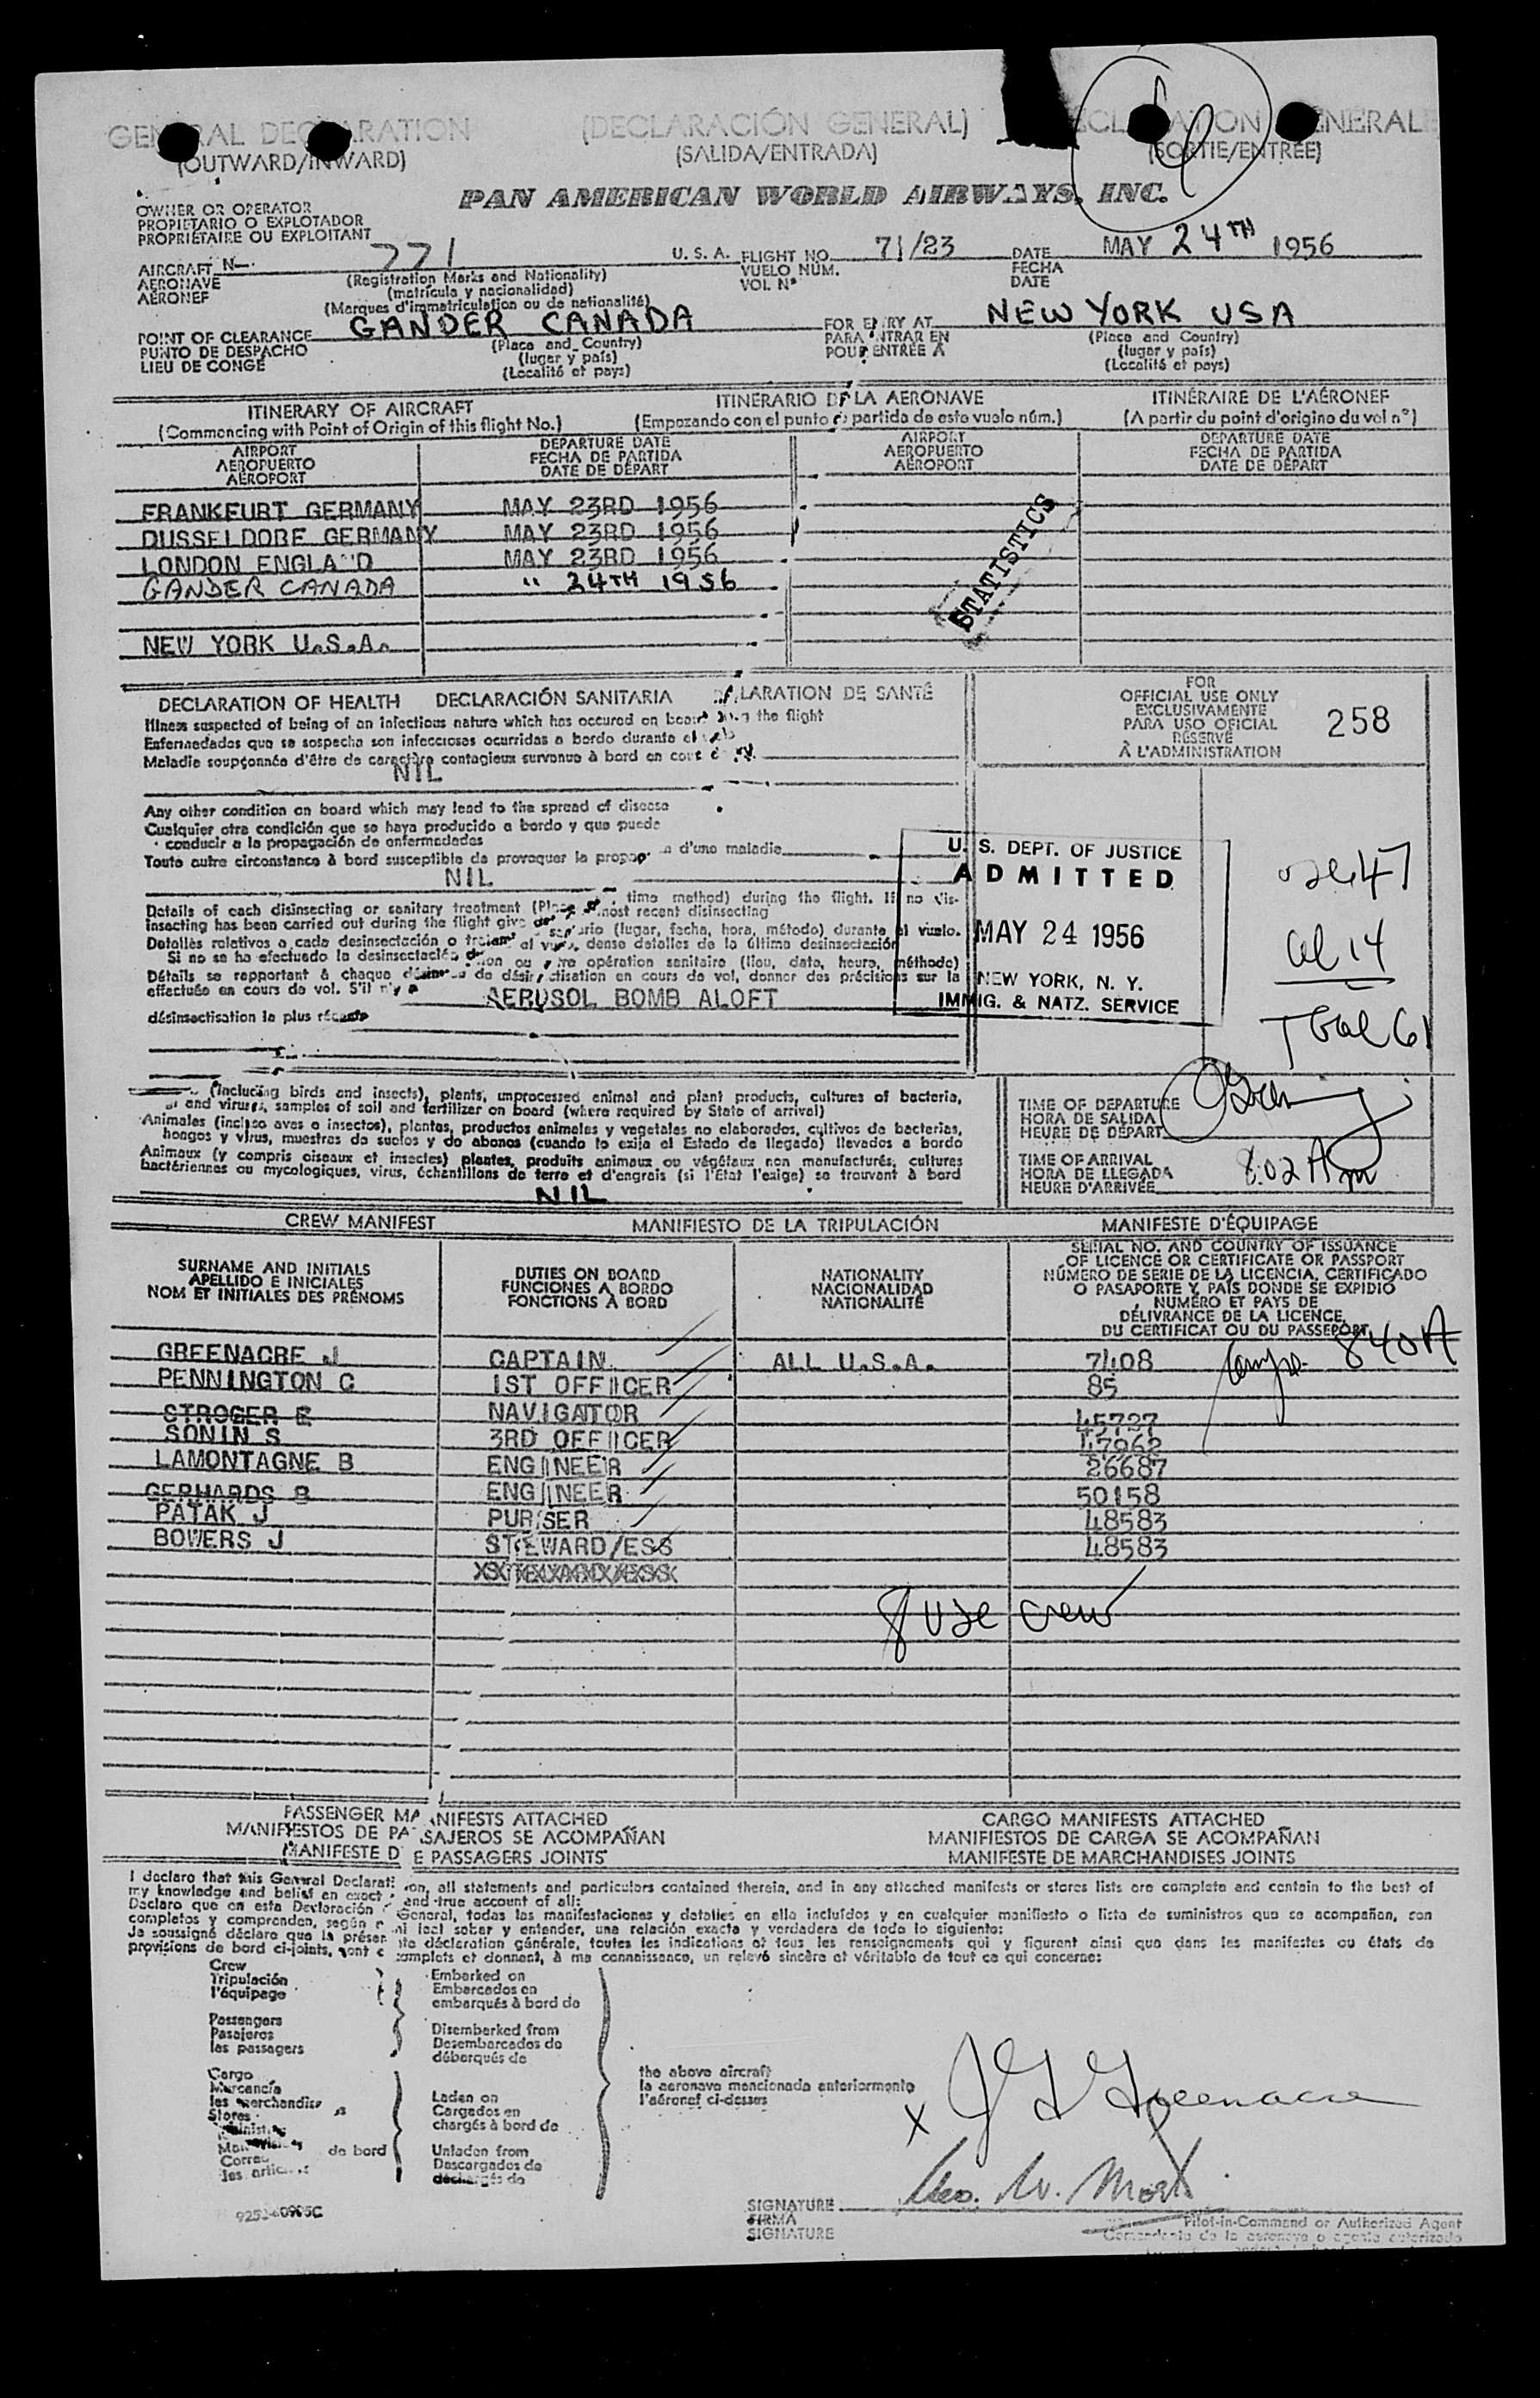 GENERAL DECLARATION (DECLARACIÓN GENERAL) DECLARATION GÉNÉRALE
(OUTWARD/INWARD) (SALIDA/ENTRADA) (SORTIE/ENTRÉE)
PAN AMERICAN WORLD AIRWAYS, INC.
OWNER OR OPERATOR
PROPIETARIO O EXPLOTADOR
PROPRIÉTAIRE OU EXPLOITANT
AIRCRAFT N-. 771 U. S. A. FLIGHT NO. 71/23 DATE MAY 24TH 1956
AERONAVE (Registration Marks and Nationality) VUELO NÚM. FECHA
AÉRONEF (matrícula y nacionalidad) VOL Nº DATE
(Marques d'immatriculation ou de nationalité)
POINT OF CLEARANCE GANDER CANADA FOR ENTRY AT NEW YORK USA
PUNTO DE DESPACHO (Place and Country) PARA ENTRAR EN (Place and Country)
LIEU DE CONGÉ (lugar y país) POUR ENTRÉE À (lugar y país)
(Localité et pays) (Localité et pays)
ITINERARY OF AIRCRAFT ITINERARIO DE LA AERONAVE ITINÉRAIRE DE L'AÉRONEF
(Commencing with Point of Origin of this flight No.) (Empezando con el punto de partida de este vuelo núm.) (A partir du point d'origine du vol nº)
AIRPORT DEPARTURE DATE AIRPORT DEPARTURE DATE
AEROPUERTO FECHA DE PARTIDA AEROPUERTO FECHA DE PARTIDA
AÉROPORT DATE DE DÉPART AÉROPORT DATE DE DÉPART
FRANKFURT GERMANY MAY 23RD 1956
DUSSELDORF GERMANY MAY 23RD 1956
LONDON ENGLAND MAY 23RD 1956
GANDER CANADA " 24TH 1956
STATISTICS
NEW YORK U.S.A.
DECLARATION OF HEALTH DECLARACIÓN SANITARIA DÉCLARATION DE SANTÉ
Illness suspected of being of an infectious nature which has occured on board during the flight
Enfermedades que se sospecha son infecciosas ocurridas a bordo durante el vuelo
Maladie soupçonnée d'être de caractère contagieux survenue à bord en cours de vol.
NIL
FOR
OFFICIAL USE ONLY
EXCLUSIVAMENTE
PARA USO OFICIAL
RÉSERVÉ
À L'ADMINISTRATION
258
Any other condition on board which may lead to the spread of disease
Cualquier otra condición que se haya producido a bordo y que puede
conducir a la propagación de enfermedades
Toute autre circonstance à bord susceptible de provoquer la propagation d'une maladie
NIL
Details of each disinsecting or sanitary treatment (Place, time method) during the flight. If no disinsecting
has been carried out during the flight give most recent disinsecting
Detalles relativos a cada desinsectación o tratamiento sanitario (lugar, fecha, hora, método) durante el vuelo.
Si no se ha efectuado la desinsectación el vuelo, dense detalles de la última desinsectación
Détails se rapportant à chaque désinsectisation ou autre opération sanitaire (lieu, date, heure, méthode)
effectuée en cours de vol. S'il n'y a de désinsectisation en cours de vol, donner des précisions sur la
désinsectisation la plus récente
AEROSOL BOMB ALOFT
U. S. DEPT. OF JUSTICE
ADMITTED
MAY 24 1956
NEW YORK, N. Y.
IMMIG. & NATZ. SERVICE
usc 47
al 14
Total 61
(including birds and insects), plants, unprocessed animal and plant products, cultures of bacteria,
and viruses, samples of soil and fertilizer on board (where required by State of arrival)
Animales (incluso aves o insectos), plantas, productos animales y vegetales no elaborados, cultivos de bacterias,
hongos y virus, muestras de suelos y de abonos (cuando lo exija el Estado de llegada) llevados a bordo
Animaux (y compris oiseaux et insectes) plantes, produits animaux ou végétaux non manufacturés, cultures
bactériennes ou mycologiques, virus, échantillons de terre et d'engrais (si l'État l'exige) se trouvant à bord
NIL
TIME OF DEPARTURE
HORA DE SALIDA
HEURE DE DÉPART
TIME OF ARRIVAL
HORA DE LLEGADA
HEURE D'ARRIVÉE
8:02 AM
CREW MANIFEST MANIFIESTO DE LA TRIPULACIÓN MANIFESTE D'ÉQUIPAGE
SURNAME AND INITIALS
APELLIDO E INICIALES
NOM ET INITIALES DES PRÉNOMS
DUTIES ON BOARD
FUNCIONES A BORDO
FONCTIONS À BORD
NATIONALITY
NACIONALIDAD
NATIONALITÉ
SERIAL NO. AND COUNTRY OF ISSUANCE
OF LICENCE OR CERTIFICATE OR PASSPORT
NÚMERO DE SERIE DE LA LICENCIA, CERTIFICADO
O PASAPORTE Y PAÍS DONDE SE EXPIDIÓ
NUMÉRO ET PAYS DE
DÉLIVRANCE DE LA LICENCE,
DU CERTIFICAT OU DU PASSEPORT
GREENACRE J CAPTAIN ALL U.S.A. 7408 840A
PENNINGTON C 1ST OFFICER 85
STROGER E NAVIGATOR 45727
SONIN S 3RD OFFICER 47962
LAMONTAGNE B ENGINEER 26687
GERHARDS B ENGINEER 50158
PATAK J PURSER 48583
BOWERS J STEWARD/ESS 48583
8 USC crew
PASSENGER MANIFESTS ATTACHED CARGO MANIFESTS ATTACHED
MANIFIESTOS DE PASAJEROS SE ACOMPAÑAN MANIFIESTOS DE CARGA SE ACOMPAÑAN
MANIFESTE DE PASSAGERS JOINTS MANIFESTE DE MARCHANDISES JOINTS
I declare that this General Declaration, all statements and particulars contained therein, and in any attached manifests or stores lists are complete and contain to the best of
my knowledge and belief an exact and true account of all:
Declaro que en esta Declaración General, todas las manifestaciones y detalles en ella incluídos y en cualquier manifiesto o lista de suministros que se acompañan, son
completos y comprenden, según mi leal saber y entender, una relación exacta y verdadera de todo lo siguiente:
Je soussigné déclare que la présente déclaration générale, toutes les indications et tous les renseignements qui y figurent ainsi que dans les manifestes ou états de
provisions de bord ci-joints, sont complets et donnent, à ma connaissance, un relevé sincère et véritable de tout ce qui concerne:
Crew
Tripulación
l'équipage
Passengers
Pasajeros
les passagers
Cargo
Mercancía
les merchandise
Stores
de bord
Embarked on
Embarcados en
embarqués à bord de
Disembarked from
Desembarcados de
débarqués de
Laden on
Cargados en
chargés à bord de
Unladen from
Descargados de
déchargés de
the above aircraft
la aeronave mencionada anteriormente
l'aéronef ci-dessus
X J G Greenacre
Geo. W. Mork
SIGNATURE
FIRMA
SIGNATURE
Pilot-in-Command or Authorized Agent
Comandante de la aeronave o agente autorizado